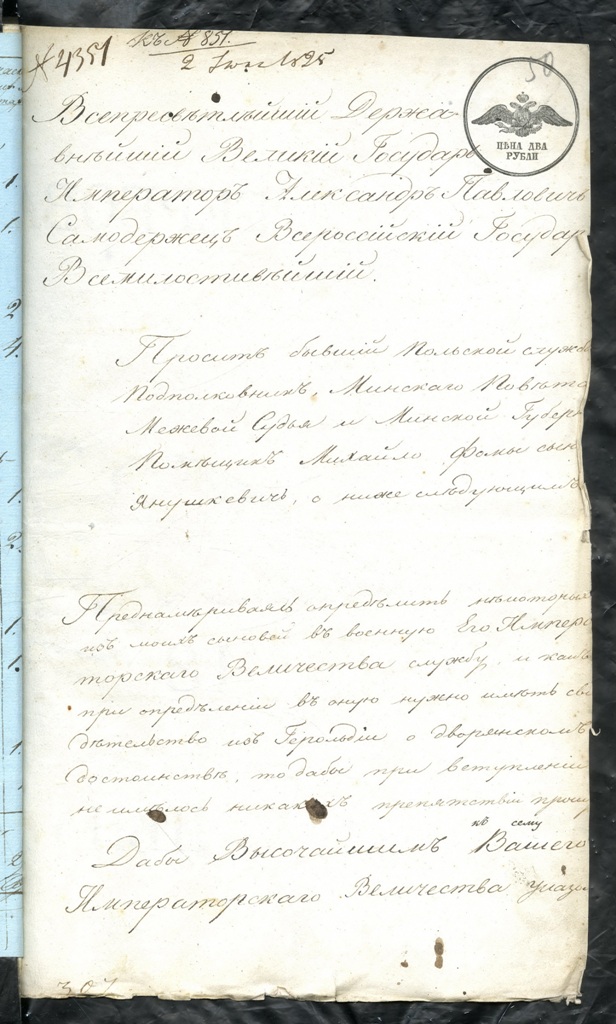 № 4351
къ № 851.
2 Июня 1825
50
ЦѢНА ДВА
РУБЛИ
Всепресвѣтлѣйшій Держа-
внѣйшій Великій Государь
Императоръ Александръ Павловичь
Самодержецъ Всероссійскій Государ
Всемилостивѣйшій.
Проситъ бывшій Польской служб
Подполковникъ, Минскаго Повѣта
Межевой Судья и Минской Губерн
Помѣщикъ Михайло Фомы сынъ
Янушкевичь, о нижеслѣдующимъ
Преднамѣривая опредѣлить нѣкоторыя
изъ моихъ сыновей въ военную Его Импера
торскаго Величества службу, и какъ
при опредѣленіи въ оную нужно имѣть сви
дѣтельство изъ Герольдіи о дворянскомъ
достоинствѣ, то дабы при вступленіи
не имѣлось никакихъ препятствій прошу
къ сему
Дабы Высочайшимъ Вашего
Императорскаго Величества указо
307